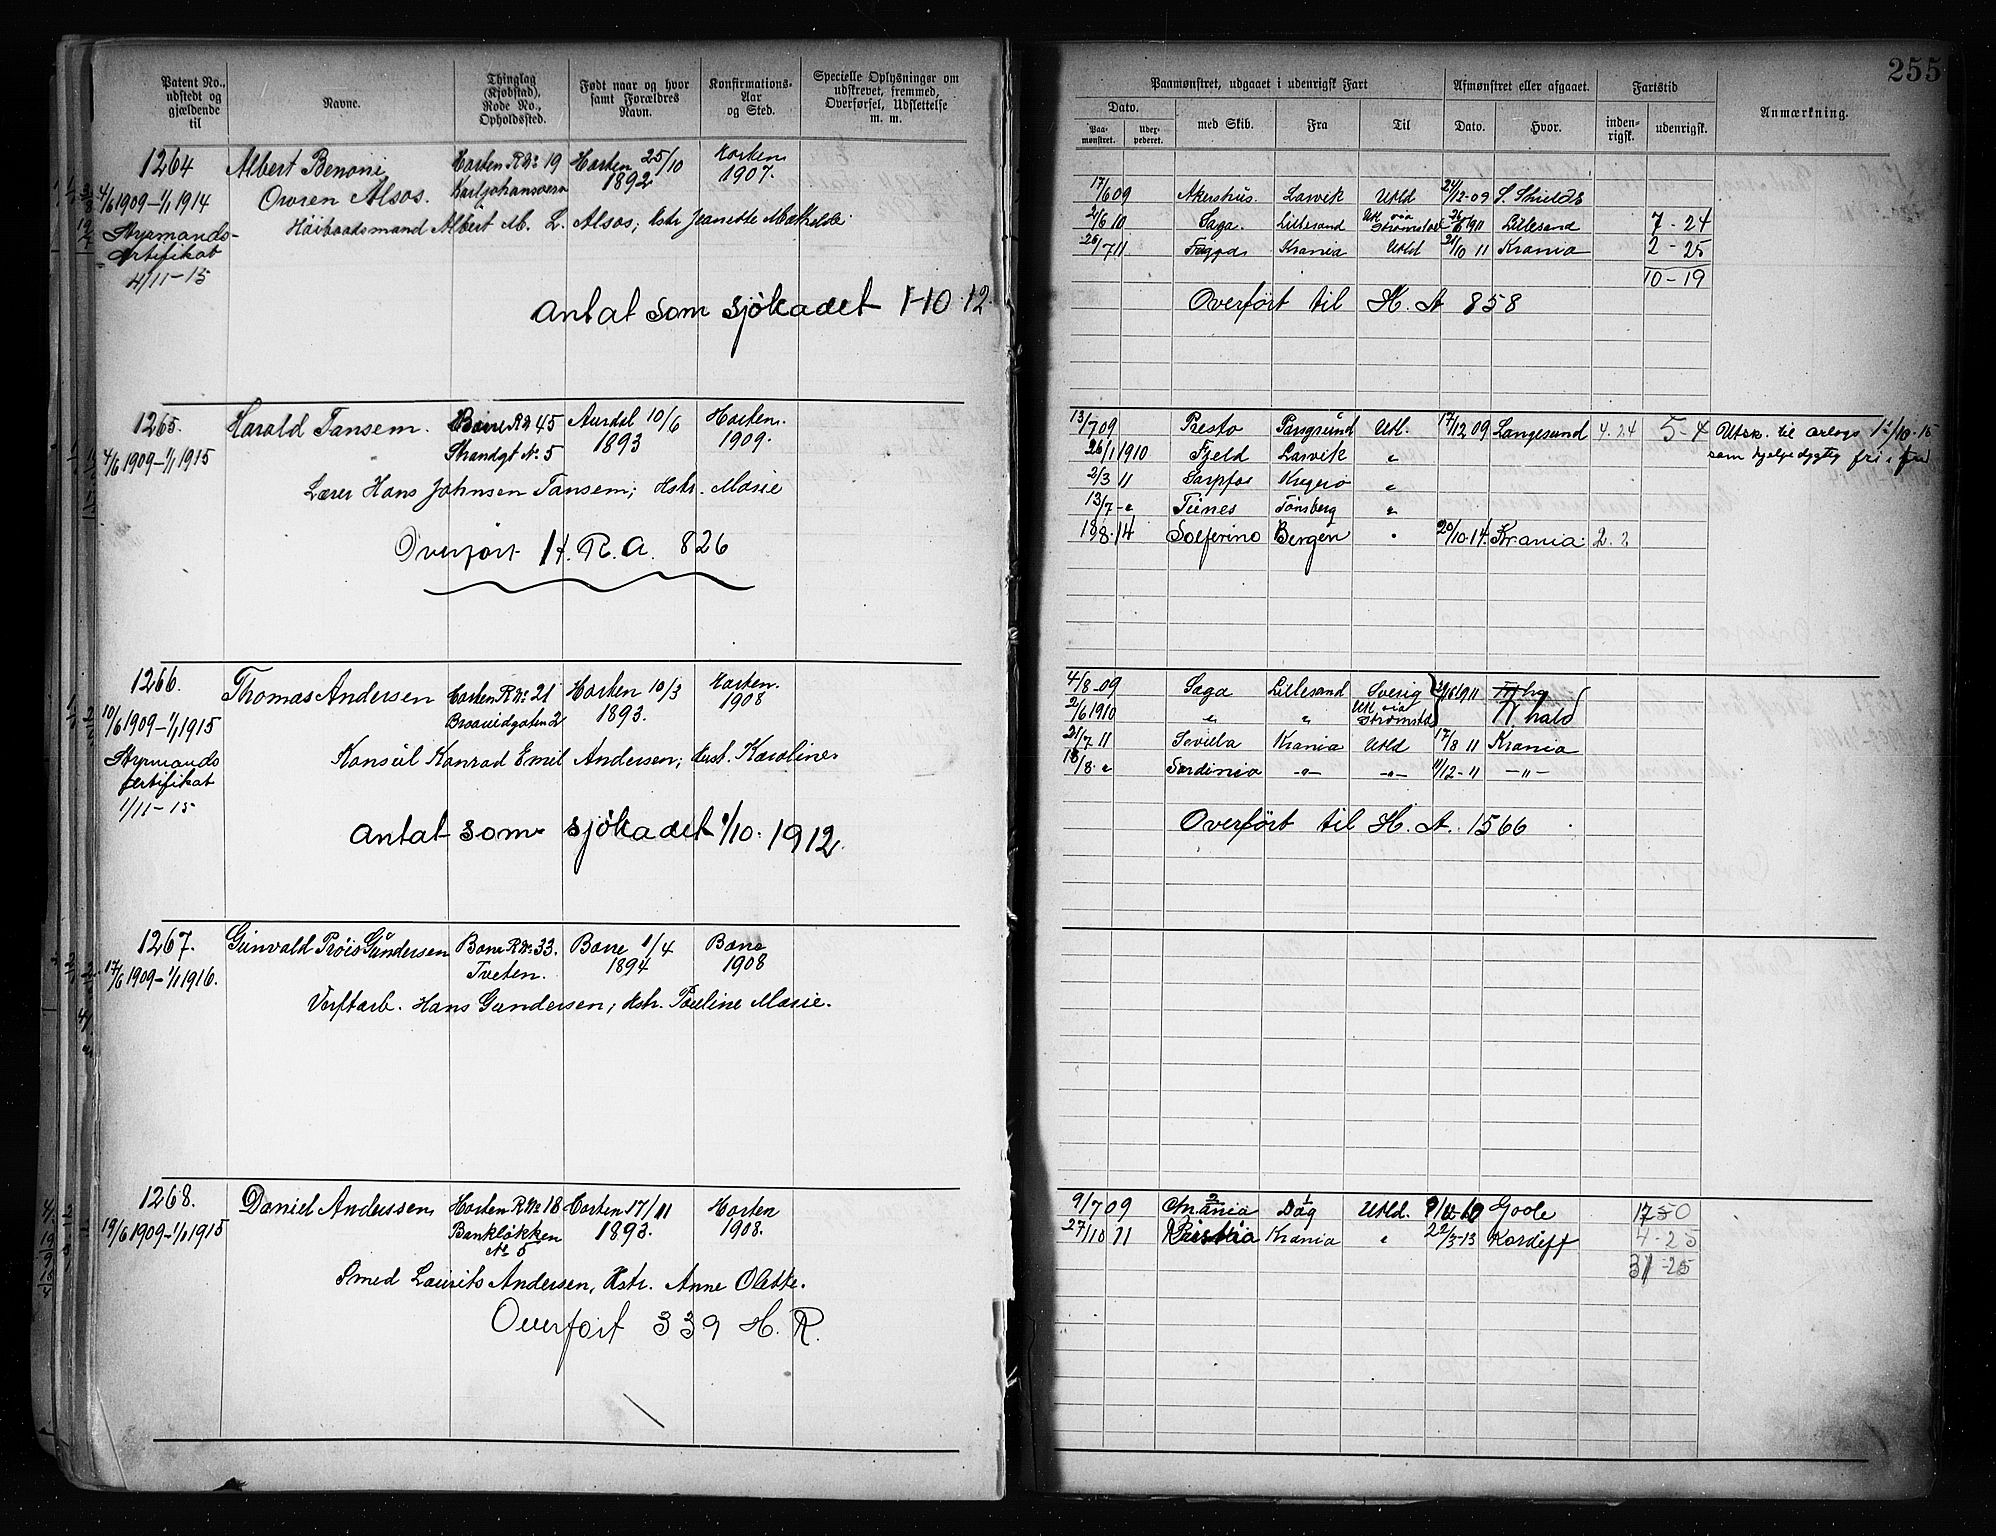 255
Patent No., udstedt og gjældende til
Navne.
Thinglag (Kjøbstad). Rode No., Opholdssted.
Født naar og hvor samt Forældres Navn.
Konfirmations-Aar og Sted.
Specielle Oplysninger om udskrevet, fremmed, Overførsel, Udslettelse m. m.
Paamønstret, udgaaet i udenrigsk Fart
Afmønstret eller afgaaet.
Fartstid
Anmærkning.
Dato.
Paamønstret.
med Skib.
Fra
Til
Dato.
Hvor.
indenrigsk.
udenrigsk.
1264 Albert Benoni Horten R No 19 Horten 25/10 Horten
4/6 1909–1/1 1914 Owren Alsos. Karljohansvern 1892 1907.
Styrmands- Høibaadsmand Albert M. L. Alsos; Hstr Jeanette Mathilde
sertifikat
4/11–15
antat som sjökadet 1-10.12.
17/6 09 Akershus Larvik Utld 24/12-09 S. Shields
2/6 10 Saga. Lillesand Utl via Strømstad 26/6 1911 Lillesand 7-24
26/7 11 Krania Utld 21/10 11 Krania 2-25
10-19
Overført til H. A 858
1265. Harald Tansem. Borre R No 45 Aurdal 10/6 Horten.
4/6 1909–1/1 1915 Strandgt No. 5 1893 1909.
Lærer Hans Johnsen Tansem; Hstr. Marie
Overført H. R. A. 826
13/7 09 Presto Porsgrund Utl. 17/12 09 Langesund 4.24 5-4 Utsk. til orlogs 15
26/1 1910 Fjeld Larvik "
som hjelpedygtig fri i fred
2/3 11 Sarpfos Kragerø "
13/7 - " Tunes Tønsberg "
18/8.14 Solferino Bergen " 20/10.14. Krania. 2.2
1266. Thomas Andersen Horten R No. 21 Horten 10/3 Horten.
10/6 1909–1/1 1915 2 1893. 1908
Styrmands Konsul Konrad Emil Andersen; Hust. Karoline
sertifikat
1/11–15
antat som sjökadet 1/10. 1912.
4/8-09 Saga Lillesand Sverig 1911
2/6 1910 " " Utl via Strømstd F. hald
21/7 11 Sevilla Krania Utld 17/8 11 Krania
18/8. " Sardinia –"– –"– 11/12-11 –"–
Overført til H. A. 1566
1267. Gunvald Prøis Gundersen Borre R No. 33. Borre 1/4 Borre
17/6 1909–1/1 1916. Tveten. 1894 1908
Verftarb. Hans Gundersen; Hstr. Pauline Marie.
1268. Daniel Anderssen Horten R No 18 Horten 17/11 Horten
19/6 1909–1/1 1915 Bankløkken No 5 1893. 1908.
Smed Laurits Andersen, Hstr. Anne Olette.
Overført 339 H. R.
9/7 09 Utld. Goole
27/10 11 Krania " 22/3-13 Kardiff 4-25
31-25